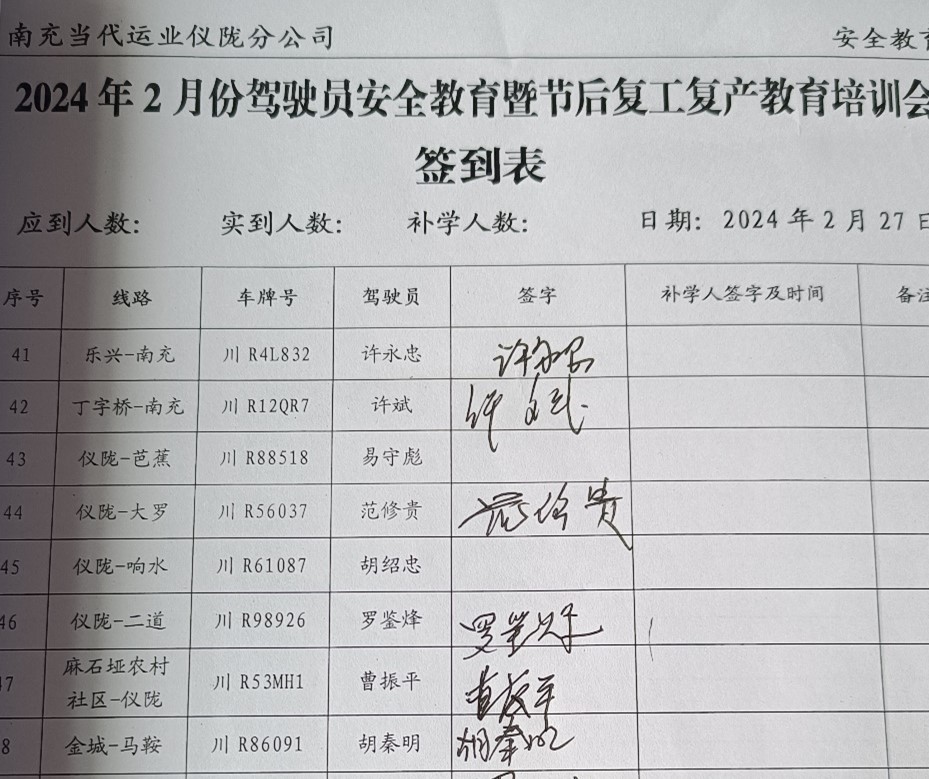 南充当代运业仪陇分公司 安全教育
2024年2月份驾驶员安全教育暨节后复工复产教育培训会
签到表
应到人数: 实到人数: 补学人数: 日期: 2024年2月27日
序号 线路 车牌号 驾驶员 签字 补学人签字及时间 备注
41 乐兴-南充 川 R4L832 许永忠 许永忠
42 丁字桥-南充 川 R12QR7 许斌 许斌
43 仪陇-芭蕉 川 R88518 易守彪
44 仪陇-大罗 川 R56037 范修贵 范修贵
45 仪陇-响水 川 R61087 胡绍忠
46 仪陇-二道 川 R98926 罗鉴烽 罗鉴烽
麻石垭农村
47 社区-仪陇 川 R53MH1 曹振平 曹振平
8 金城-马鞍 川 R86091 胡秦明 胡秦明